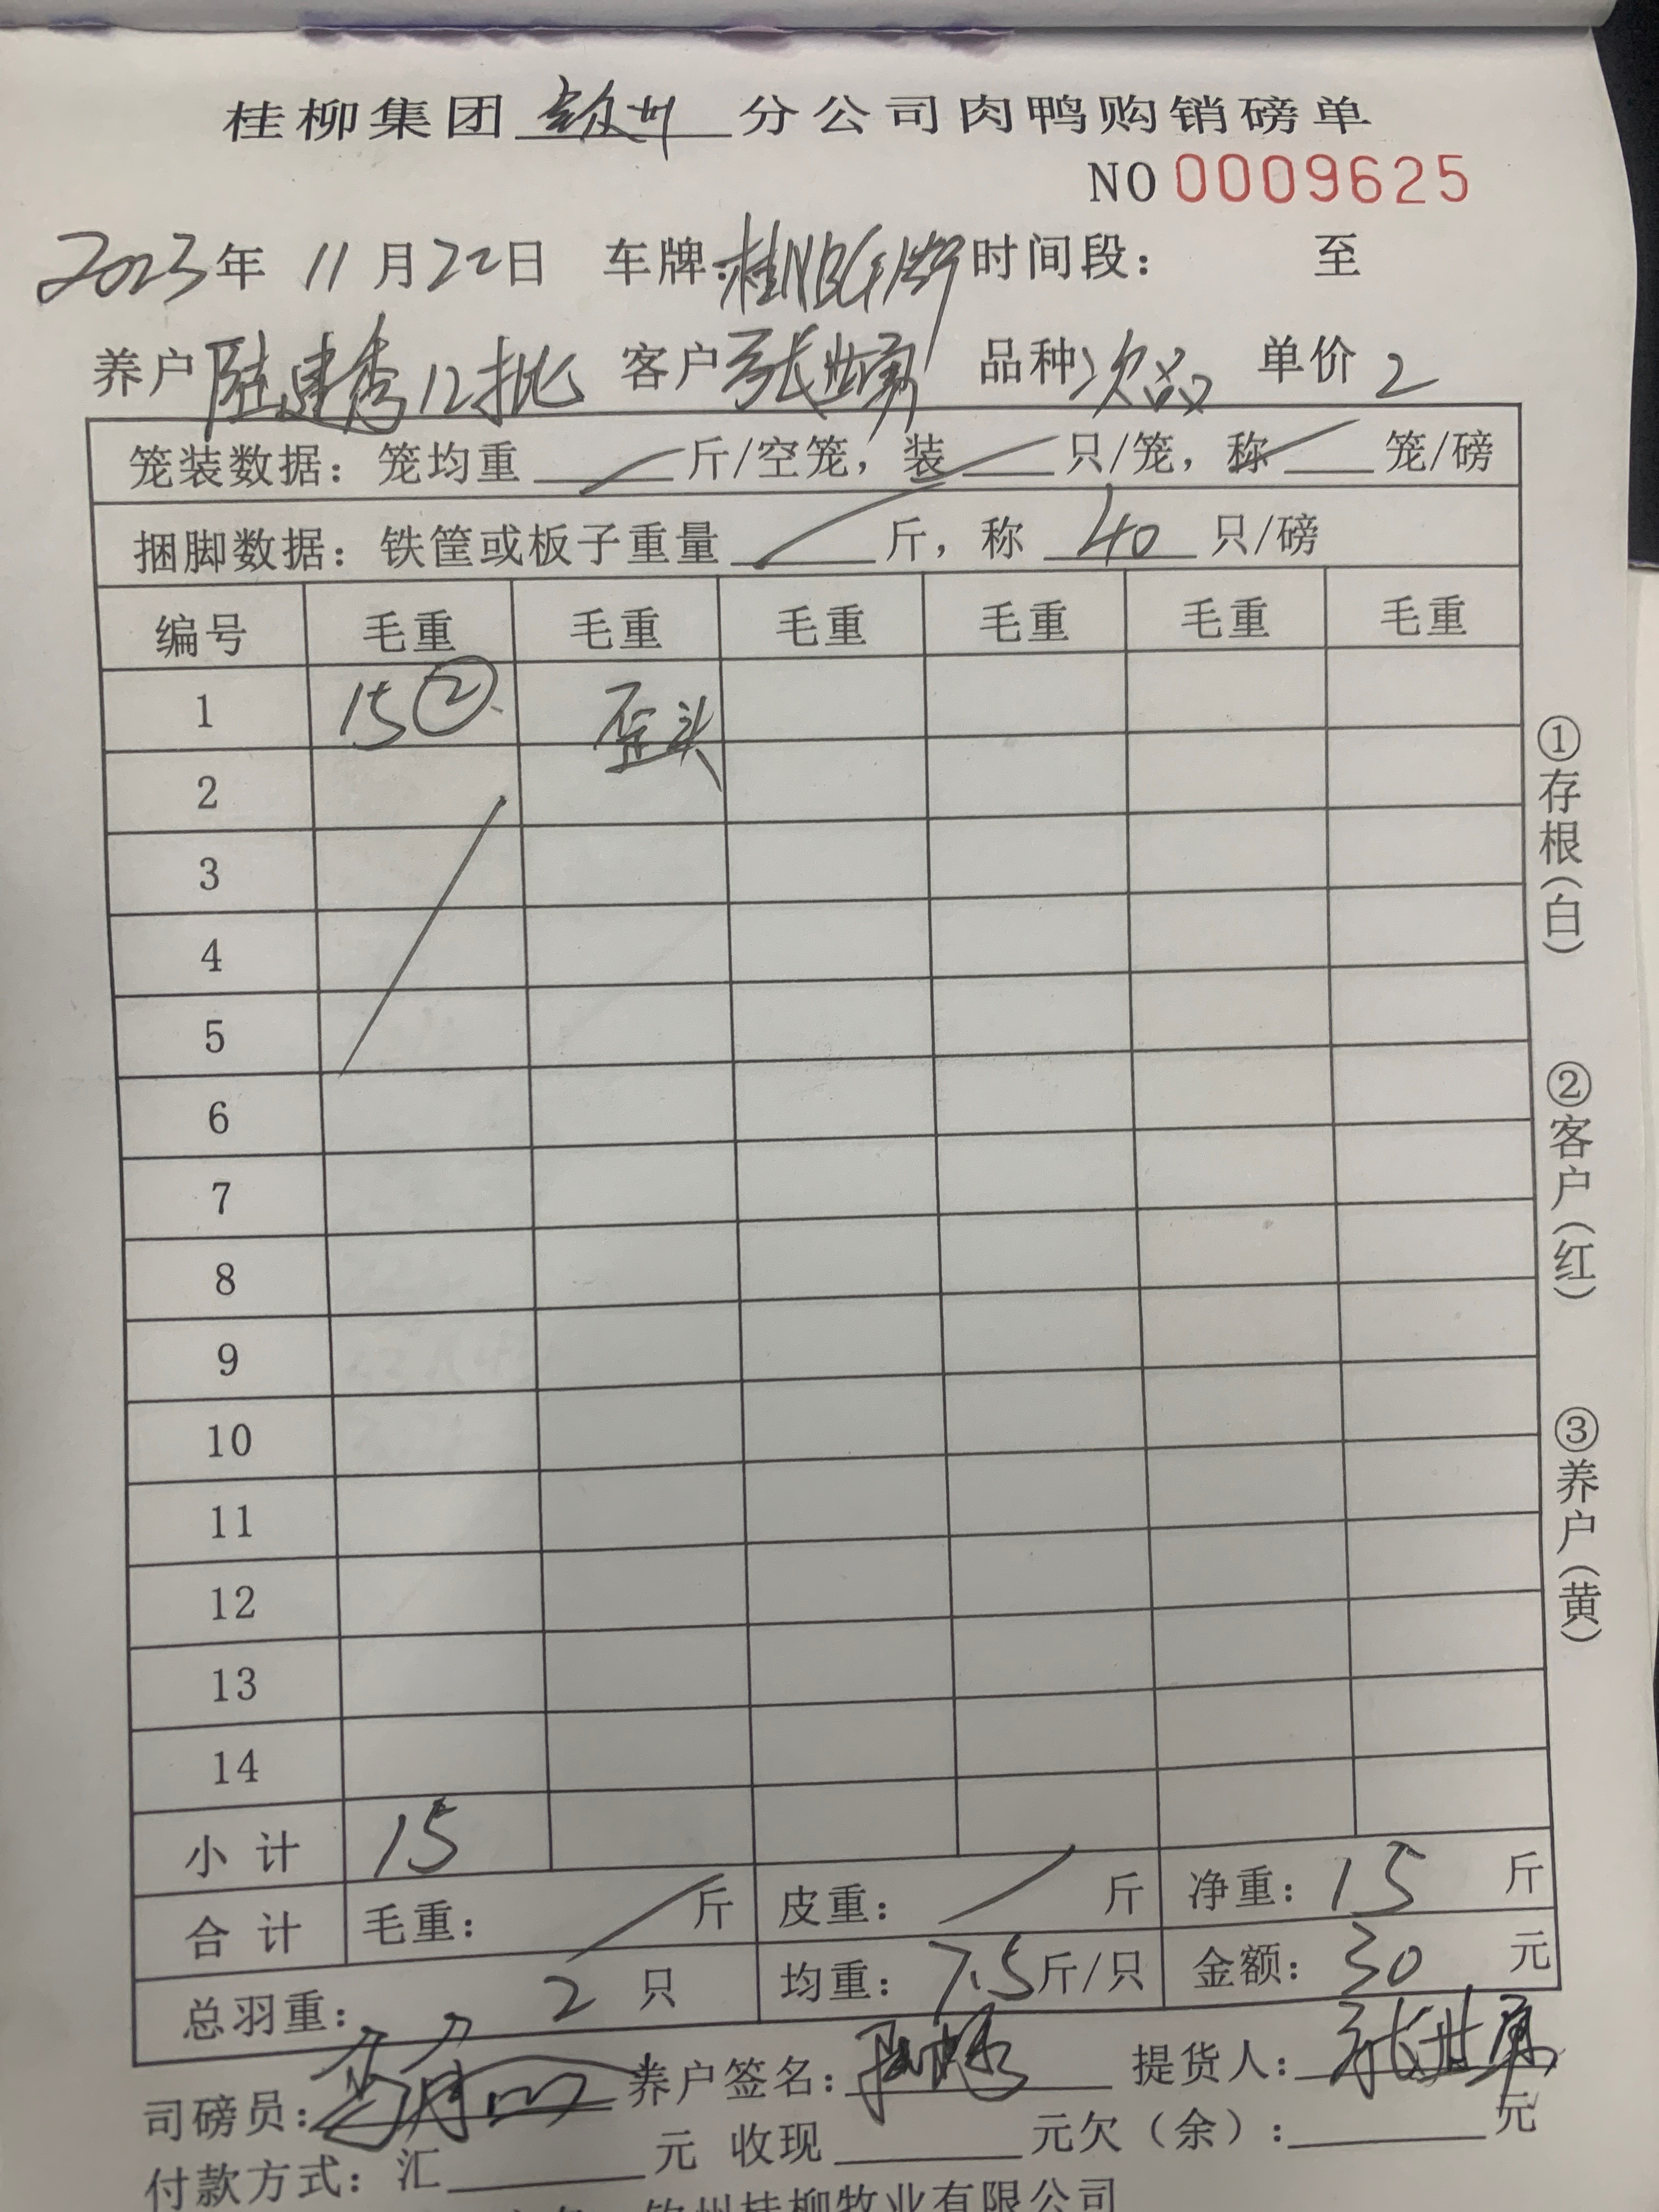 桂柳集团 钦州 分公司肉鸭购销磅单
NO 0009625
2023年 11月22日 车牌: 时间段: 至
养户 陆建秀12批 客户 张世勇 品种 次品 单价 2
笼装数据: 笼均重 / 斤/空笼, 装 / 只/笼, 称 / 笼/磅
捆脚数据: 铁筐或板子重量 / 斤, 称 40 只/磅
编号 毛重 毛重 毛重 毛重 毛重 毛重
1 15② 歪头
2
3
4
5
6
7
8
9
10
11
12
13
14
小计 15
合计 毛重: / 斤 皮重: / 斤 净重: 15 斤
总羽重: 2 只 均重: 7.5斤/只 金额: 30 元
司磅员: 养户签名: 提货人: 张世勇
付款方式: 汇 元 收现 元欠(余): 元
钦州桂柳牧业有限公司
①存根(白)
②客户(红)
③养户(黄)